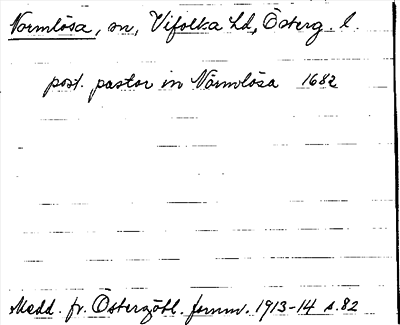 Normlösa, sn, Vifolka hd, Österg. l.
post. pastor in Normlösa 1682
Medd. fr. Östergötl. fornm. 1913-14 s. 82